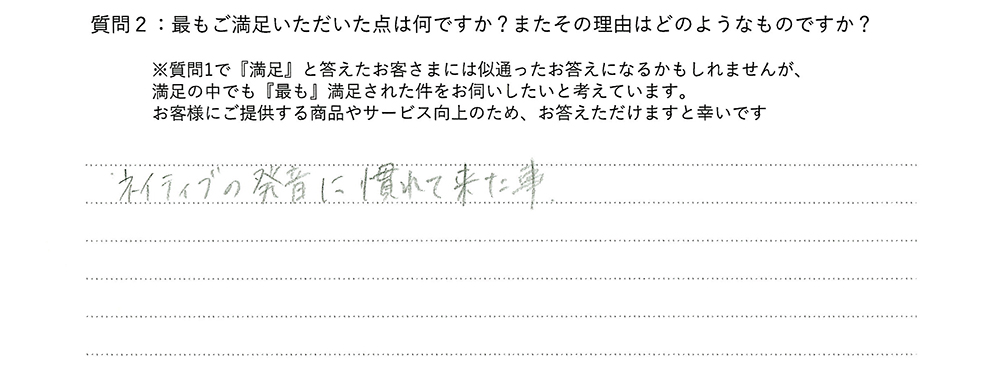 質問２：最もご満足いただいた点は何ですか？またその理由はどのようなものですか？
※質問1で『満足』と答えたお客さまには似通ったお答えになるかもしれませんが、
満足の中でも『最も』満足された件をお伺いしたいと考えています。
お客様にご提供する商品やサービス向上のため、お答えただけますと幸いです
ネイティブの発音に慣れて来た事.